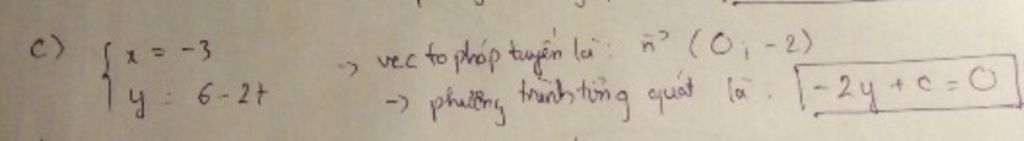 c) { x = -3 -> vec to pháp tuyến là: n→ (0; -2)
y = 6 - 2t -> phương trình tổng quát là. -2y + c = 0